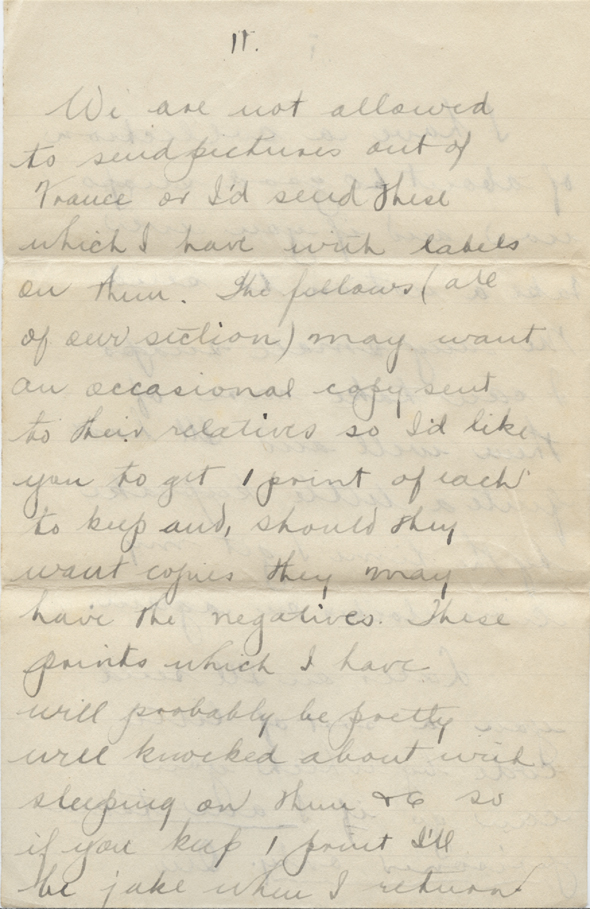 11.
We are not allowed
to send pictures out of
France or I'd send these
which I have with labels
on them. The fellows (all
of our section) may want
an occasional copy sent
to their relatives so I'd like
you to get 1 print of each
to keep and, should they
want copies they may
have the negatives. These
prints which I have
will probably be pretty
well knocked about with
sleeping on them &c so
if you keep 1 print I'll
be jake when I return